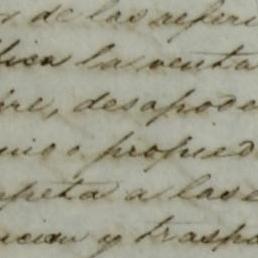 r de las referi
lica la venta
bre, desapode
nio o propied
mpeta a las e
ucion y traspa